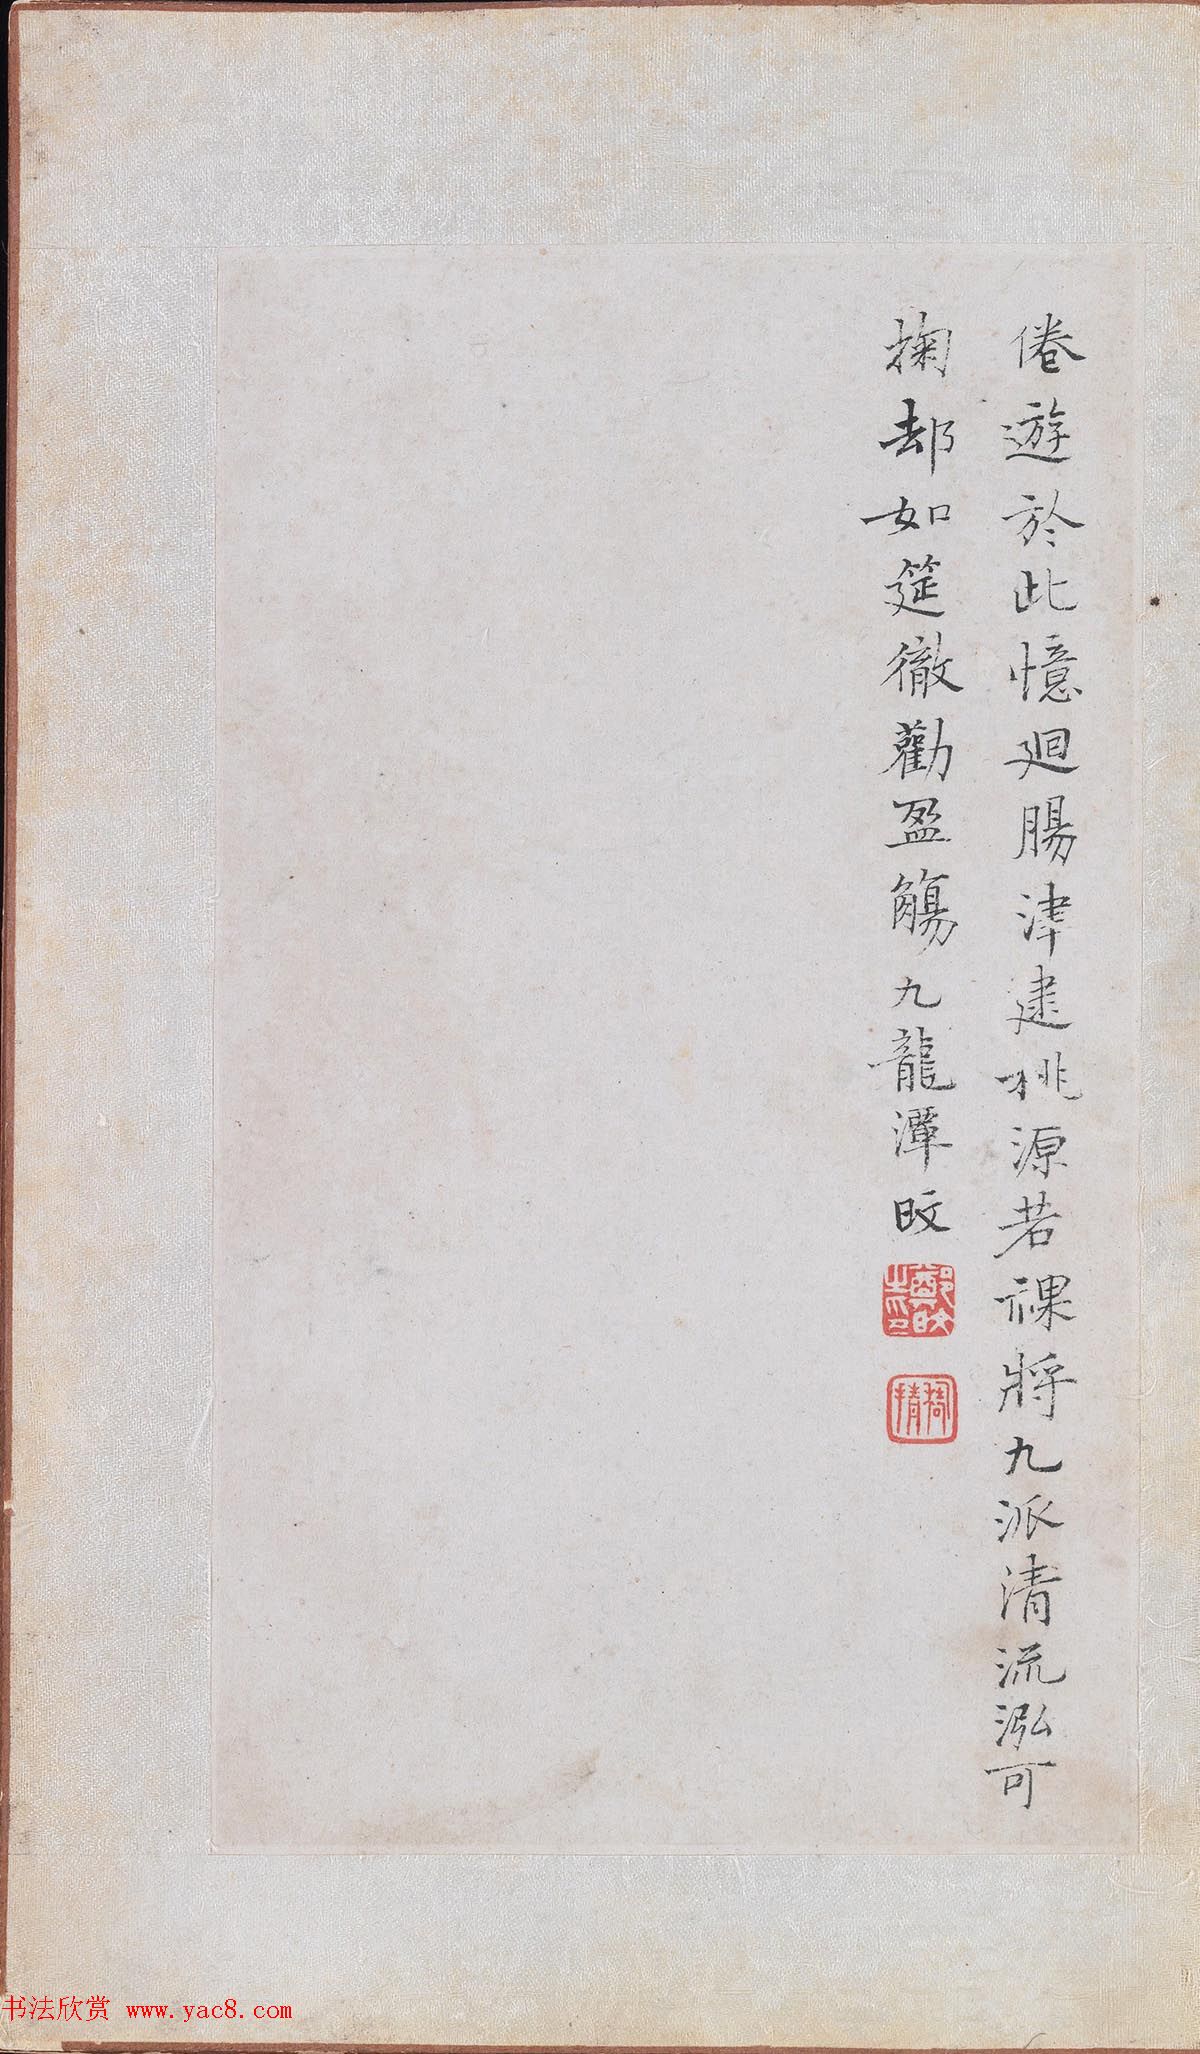 倦遊於此憶廻腸津逮桃源若裸將九派清流泓可
掬却如筵徹勸盈觴九龍潭旼
鄭旼之印
書法欣赏 www.yac8.com